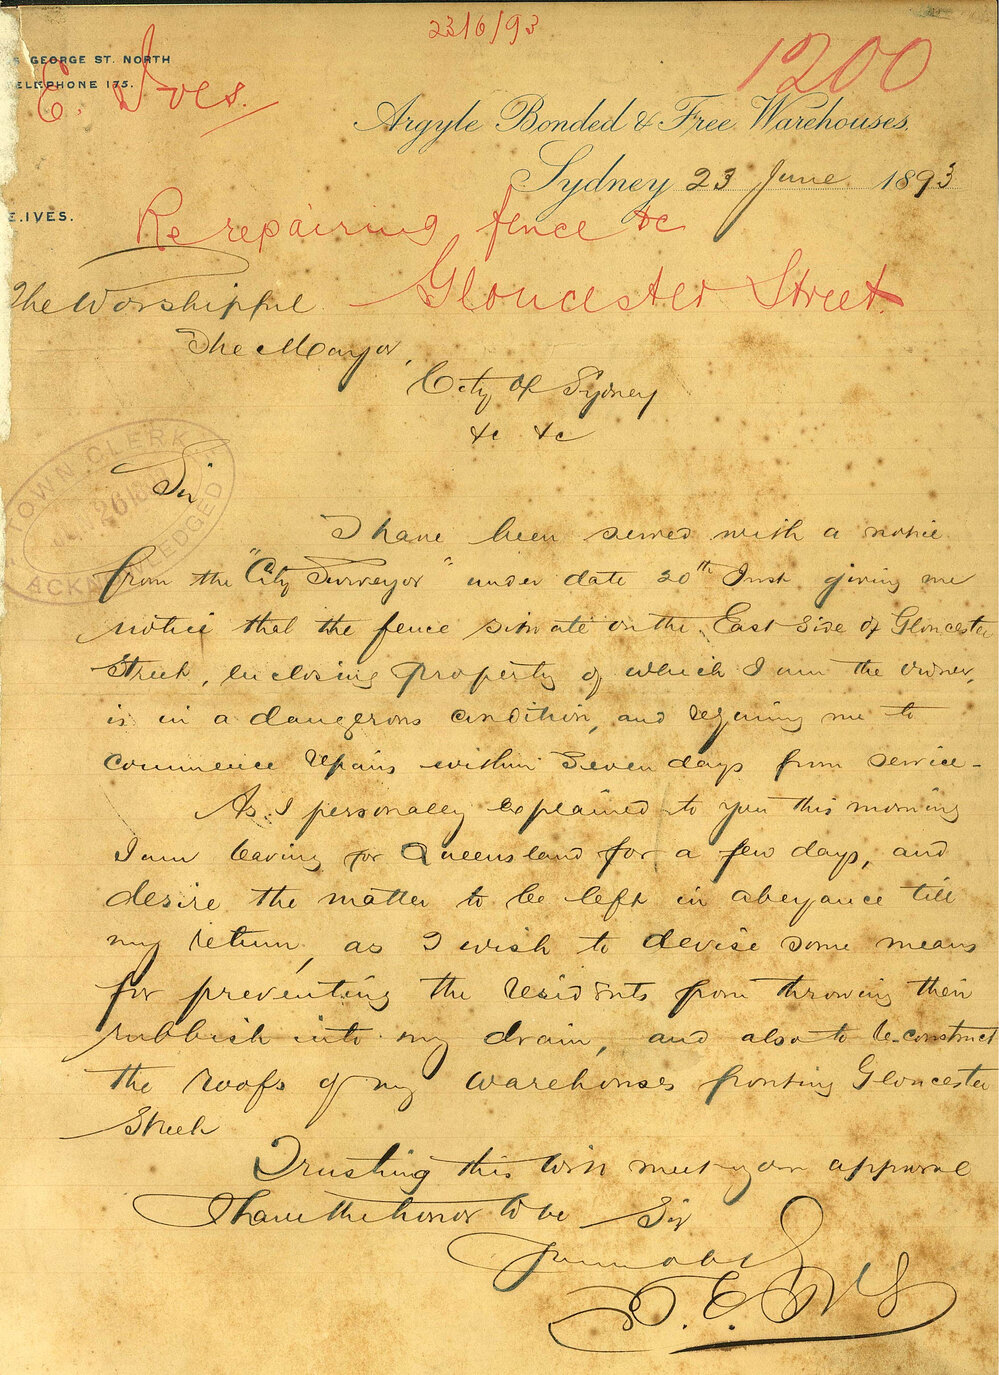 23/6/93
1200
5 GEORGE ST. NORTH
TELEPHONE 175.
E. Ives.
Argyle Bonded & Free Warehouses.
Sydney 23 June 1893
E. IVES.
Re repairing fence &c
Gloucester Street.
The Worshipful
The Mayor,
City of Sydney
&c &c
TOWN CLERK
26
ACKNOWLEDGED
Sir
I have been served with a notice
from the "City Surveyor" under date 20th Inst giving me
notice that the fence situate on the East Side of Gloucester
Street, enclosing property of which I am the owner,
is in a dangerous condition, and requiring me to
commence repairs within Seven days from service -
As I personally explained to you this morning
I am leaving for Queensland for a few days, and
desire the matter to be left in abeyance till
my return, as I wish to devise some means
for preventing the residents from throwing their
rubbish into my drain, and also to re-construct
the roofs of my warehouses fronting Gloucester
Street
Trusting this will meet your approval
I have the honor to be Sir
E. Ives